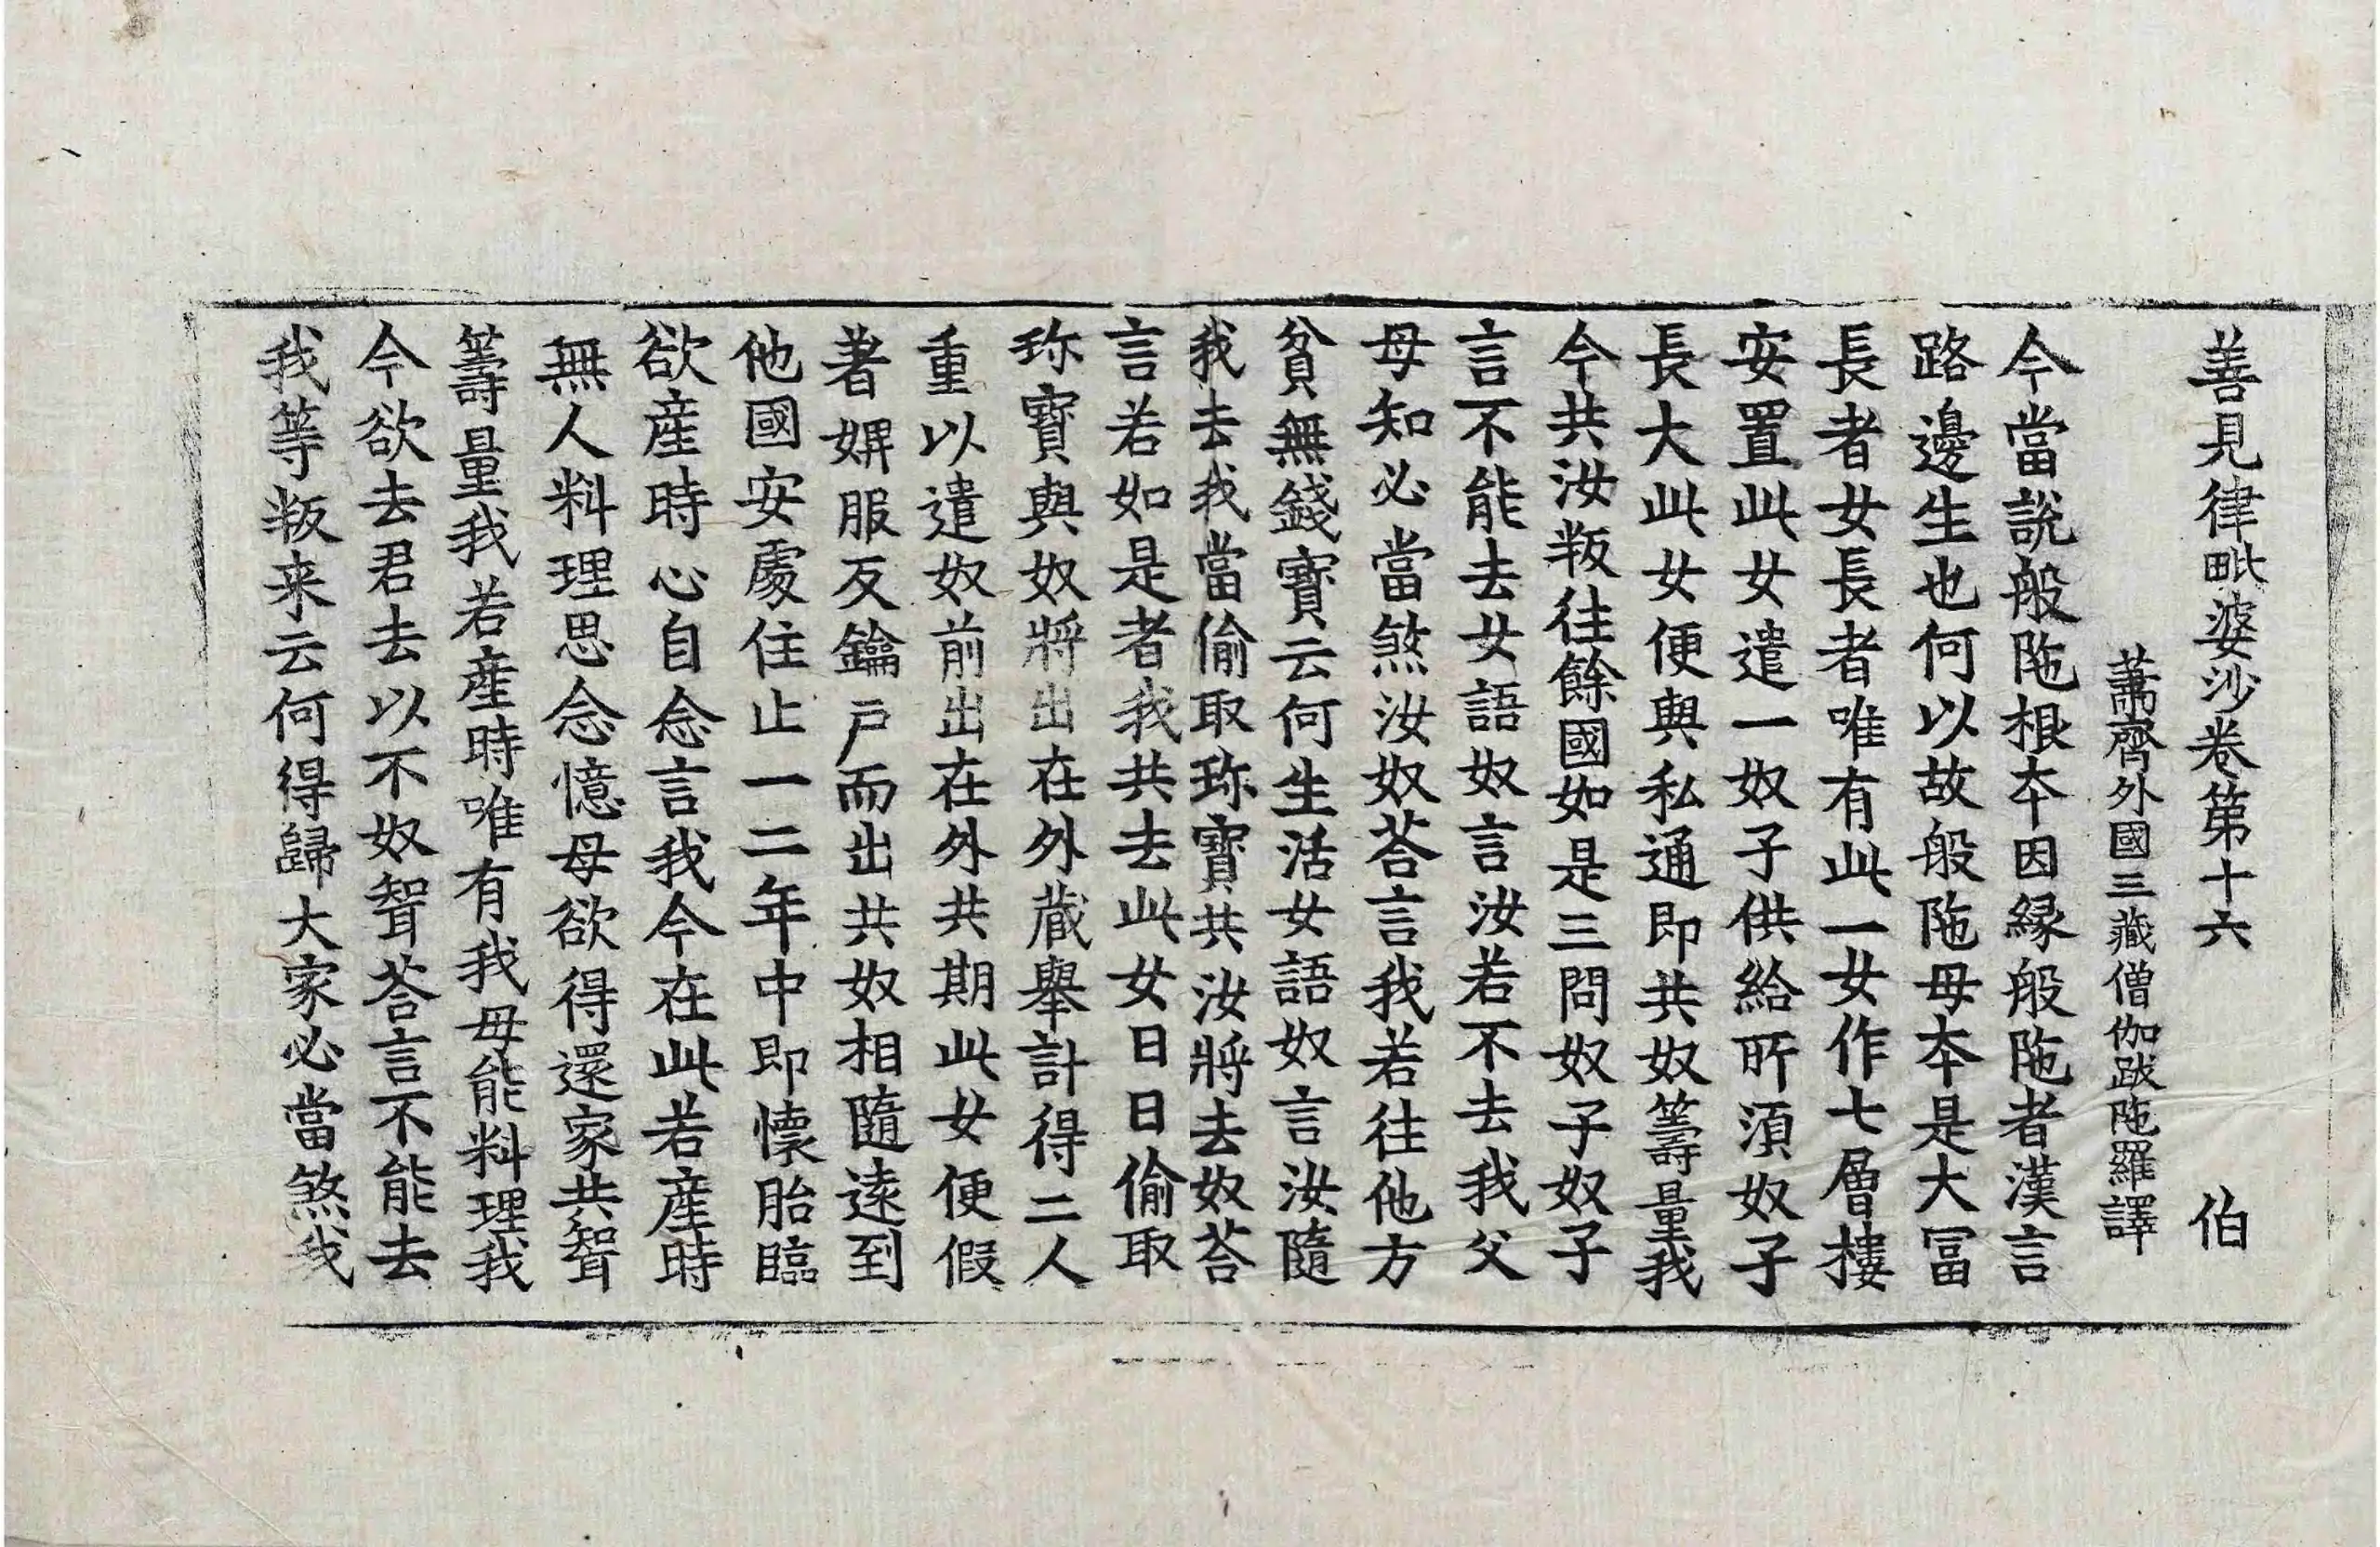 善見律毗婆沙卷第十六 伯
蕭齊外國三藏僧伽跋陁羅譯
今當說般陁根夲因緣般陁者漢言
路邊生也何以故般陁母夲是大冨
長者女長者唯有此一女作七層樓
安置此女遣一奴子供給所湏奴子
長大此女便與私通即共奴籌量我
今共汝叛往餘國如是三問奴子奴子
言不能去女語奴言汝若不去我父
母知必當煞汝奴荅言我若往他方
貧無錢寶云何生活女語奴言汝隨
我去我當偷取珎寶共汝將去奴荅
言若如是者我共去此女日日偷取
珎寶與奴將出在外蔵舉計得二人
重以遣奴前出在外共期此女便假
著婢服反鑰戶而出共奴相隨遠到
他國安處住止一二年中即懷胎臨
欲産時心自念言我今在此若産時
無人料理思念憶母欲得還家共聟
籌量我若産時唯有我母能料理我
今欲去君去以不奴聟荅言不能去
我等叛来云何得歸大家必當煞我